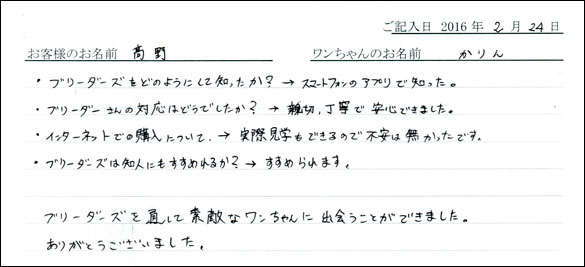 ご記入日 2016 年 2 月 24 日
お客様のお名前 高野 ワンちゃんのお名前 かりん
・ブリーダーズをどのようにして知ったか？→スマートフォンのアプリで知った。
・ブリーダーさんの対応はどうでしたか？→親切、丁寧で安心できました。
・インターネットでの購入について、→実際見学もできるので不安は無かったです。
・ブリーダーズは知人にもすすめれるか？→すすめられます。
ブリーダーズを通して素敵なワンちゃんに出会うことができました。
ありがとうございました。